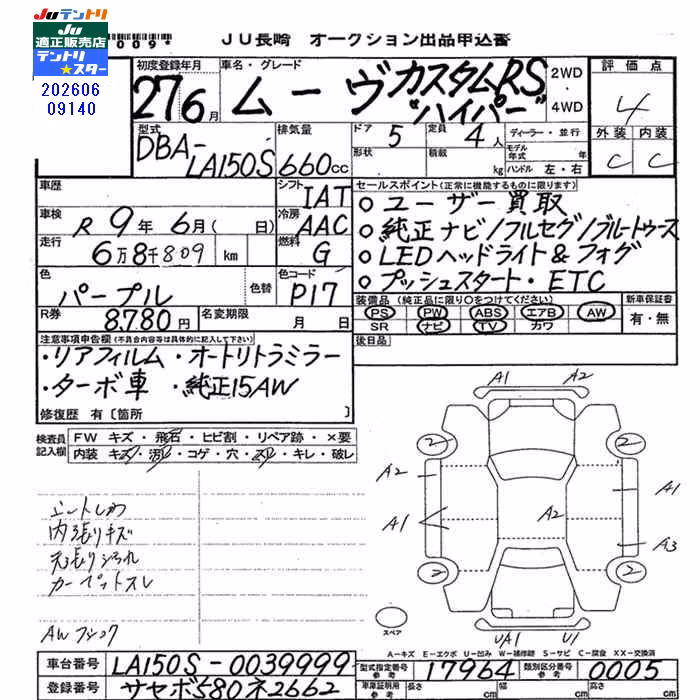 JUテントリ
JU
適正販売店
テントリ
★スター
202606
09140
JU長崎 オークション出品申込書
初度登録年月
27 6月
車名・グレード
ムーヴ カスタムRS
"ハイパー"
2WD
4WD
評価点
4
外装 内装
C C
型式
DBA-
LA150S
排気量
660cc
ドア 5
形状
定員 4人
積載 kg
ディーラー・並行
モデル年式 年
ハンドル 左・右
車歴
シフト IAT
車検 R 9年 6月( 日)
冷房 AAC
走行 6万8千809 km
燃料 G
色 パープル 色替
色コード P17
R券 8,780円
名変期限 月 日
セールスポイント(正常に機能するものに限ります)
○ユーザー買取
○純正ナビ/フルセグ/ブルートゥース
○LEDヘッドライト&フォグ
○プッシュスタート・ETC
装備品(純正品に限り○をつけてください)
PS PW ABS エアB AW
SR ナビ TV カワ
新車保証書
有・無
後日品
注意事項申告欄(不具合内容等は具体的に記入して下さい)
・リアフィルム・オートリトラミラー
・ターボ車 ・純正15AW
修復歴 有〔箇所 〕
検査員記入欄
FW キズ・飛石・ヒビ割・リペア跡・×要
内装 キズ・汚レ・コゲ・穴・スレ・キレ・破レ
内張りキズ
カーペットスレ
A1 A2
2 2
A2 A1
A1 A2
A3
2 2
UA1 U1
スペア
A-キズ E-エクボ U-凹み W-補修跡 S-サビ C-腐食 XX-交換済
車台番号 LA150S-0039999
登録番号 サセボ580ネ2662
型式指定番号 参考 17964
類別区分番号 参考 0005
車庫証明用 参考 長さ cm 幅 cm 高さ cm